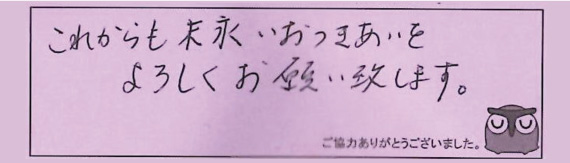 これからも末永いおつきあいを
よろしくお願い致します。
ご協力ありがとうございました。